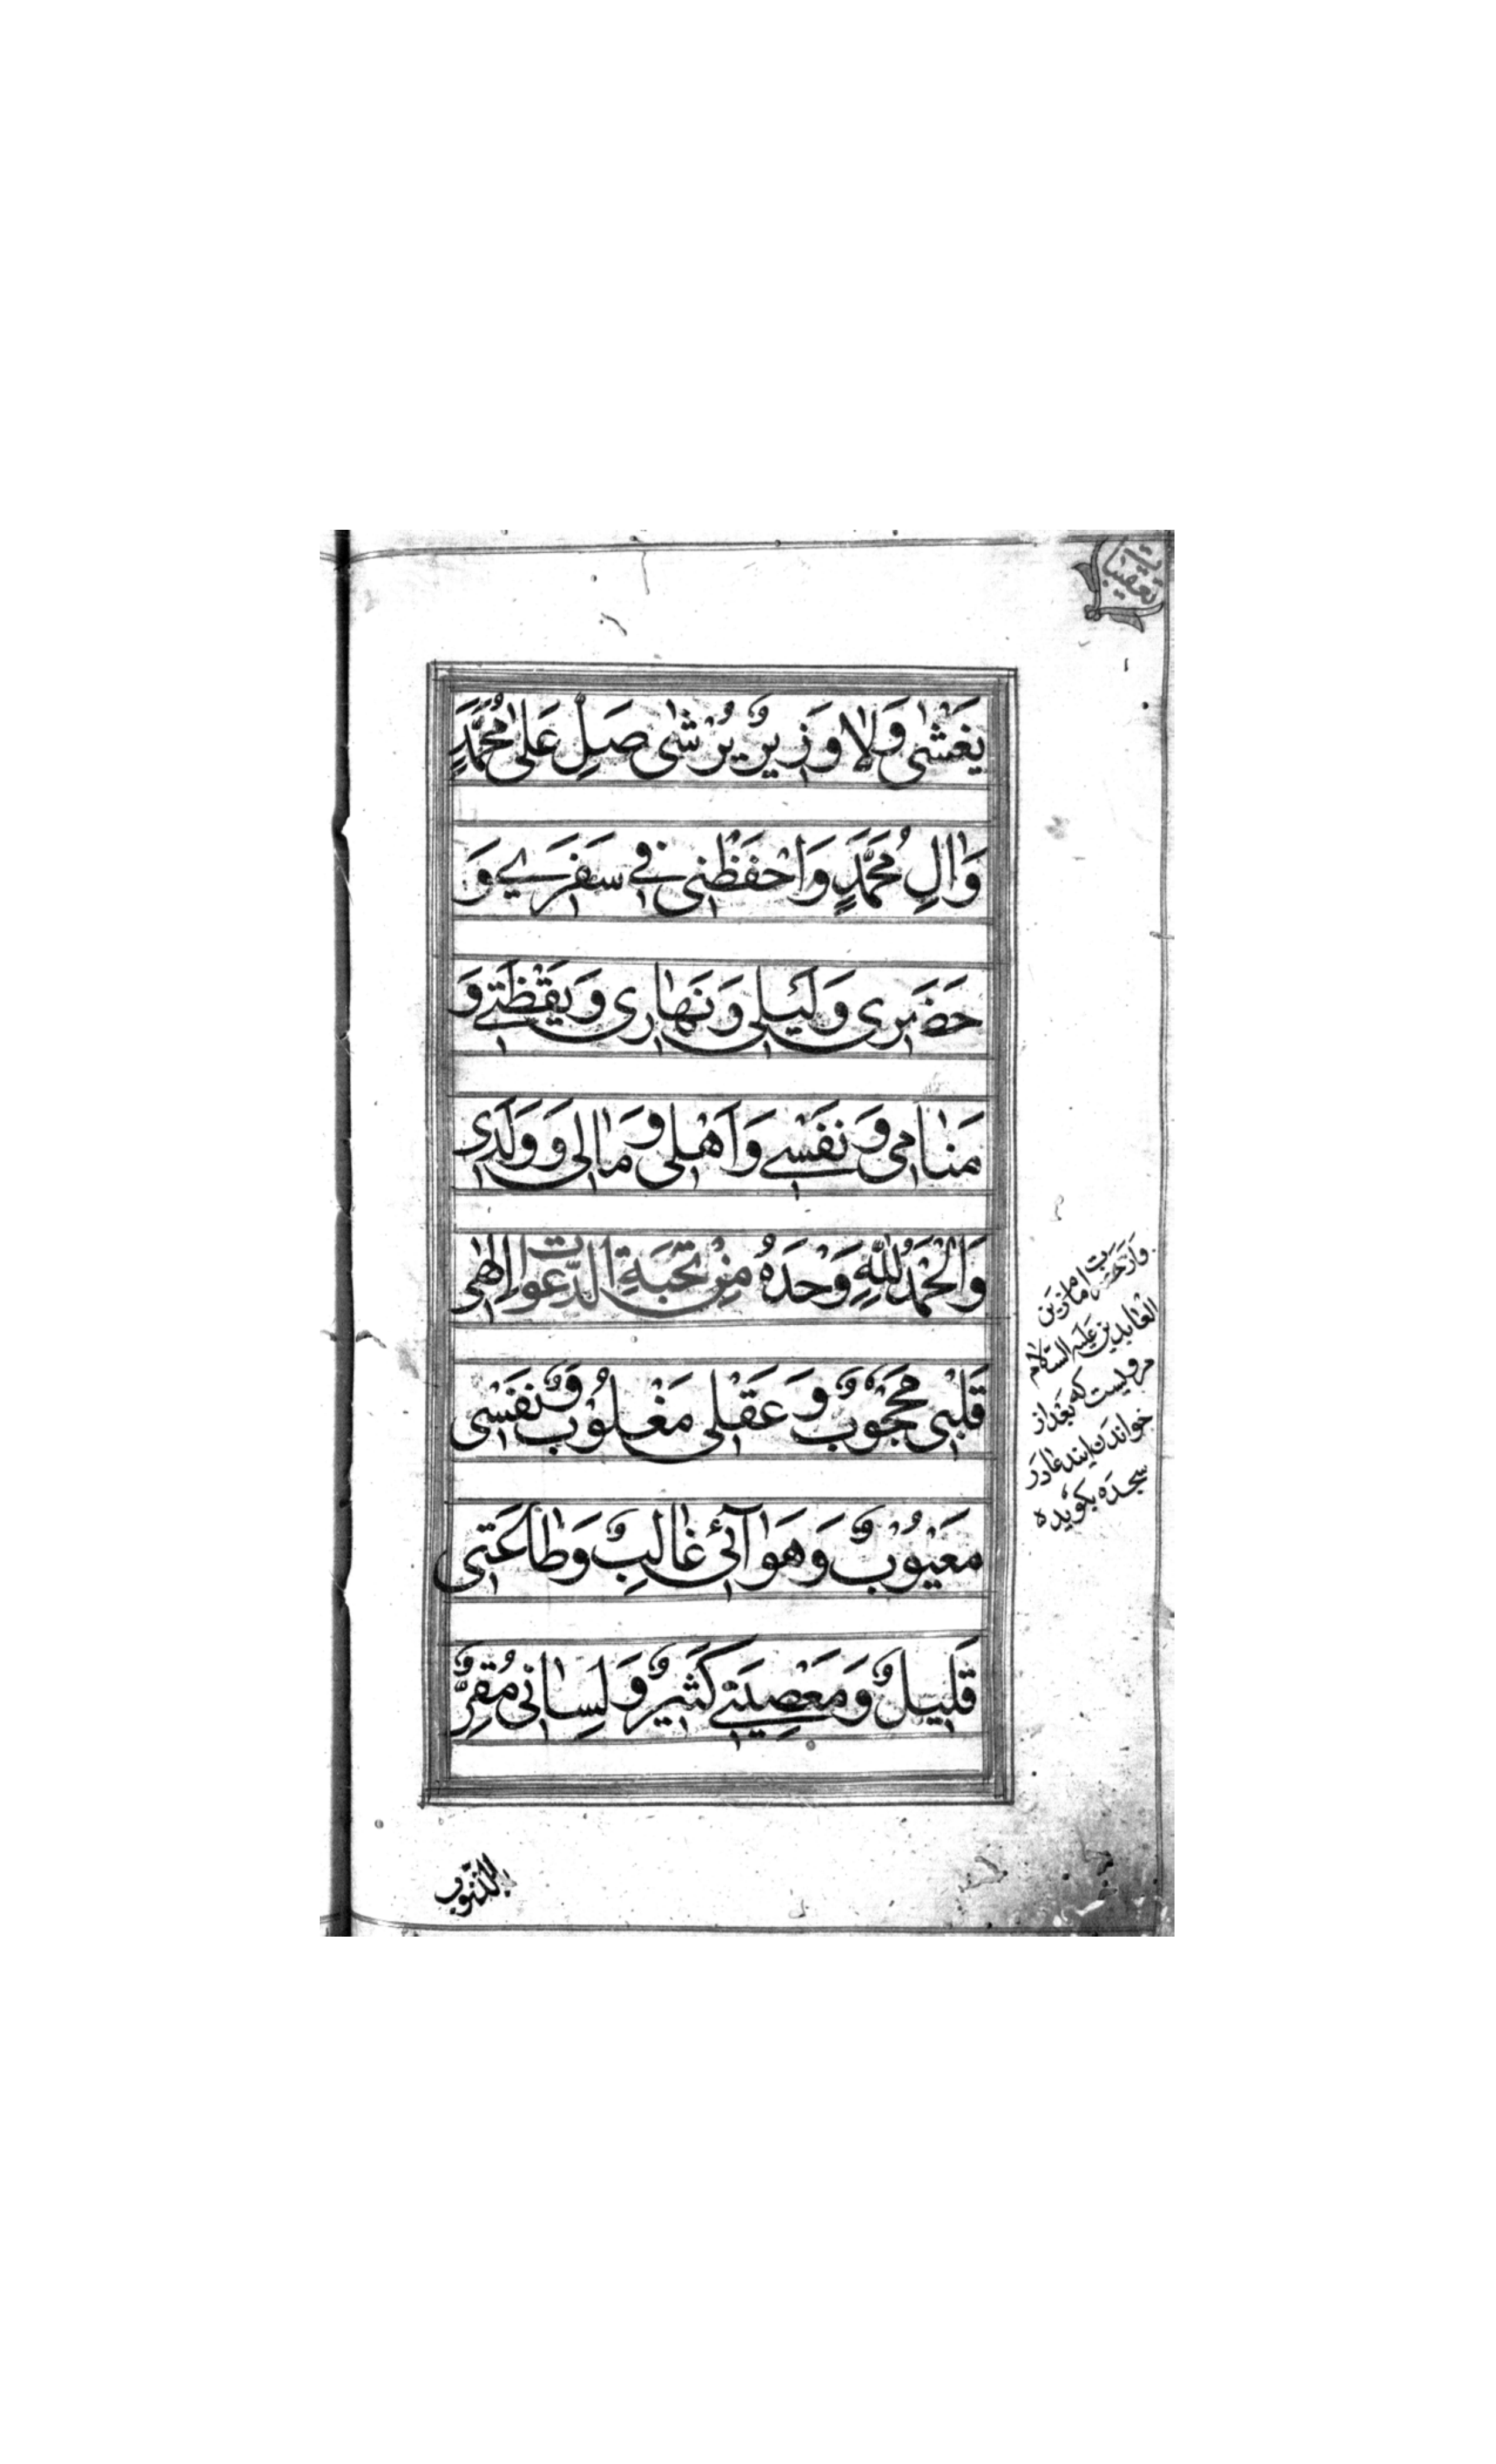 تعقیبات
یَغْشٰی وَلٰا وَزِیرٌ یُرْشٰی صَلِ عَلٰی مُحَمَّدٍ
وَاٰلِ مُحَمَّدٍ وَاحْفَظْنِی فِی سَفَرِی وَ
حَضَرِی وَلَیْلِی وَنَهٰارِی وَیَقْظَتِی وَ
مَنٰامِی وَنَفْسِی وَاَهْلِی وَمٰالِی وَوَلَدِی
وَالْحَمْدُ لِلّٰهِ وَحْدَهُ مِنْ نُخْبَةِ الدَّعَوٰاتِ اِلٰهِی
قَلْبِی مَحْجُوْبٌ وَعَقْلِی مَغْلُوْبٌ وَنَفْسِی
مَعْیُوْبٌ وَهَوٰآئِی غٰالِبٌ وَطٰاعَتِی
قَلِیلٌ وَمَعْصِیَتِی کَثِیرٌ وَلِسٰانِی مُقِرٌّ
وازحضرت امام زین
العابدین علیه السلام
مرویست که بعد از
خواندن ایندعا در
سجده بکوید